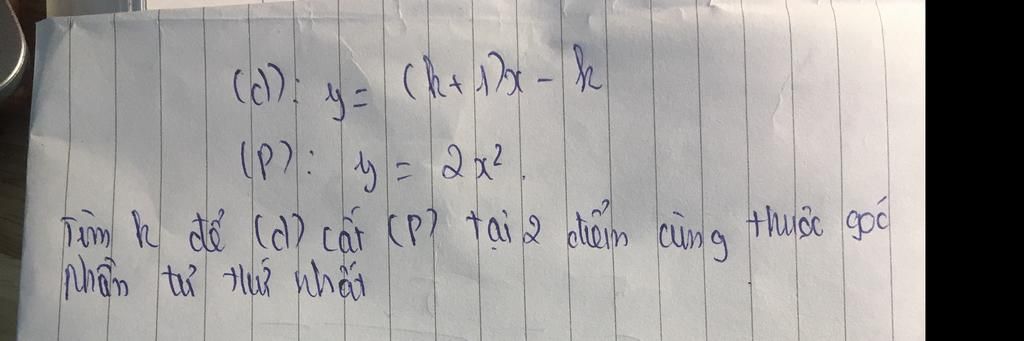 (d): y = (k + 1)x - k
(P): y = 2x².
Tìm k để (d) cắt (P) tại 2 điểm cùng thuộc góc
phần tư thứ nhất